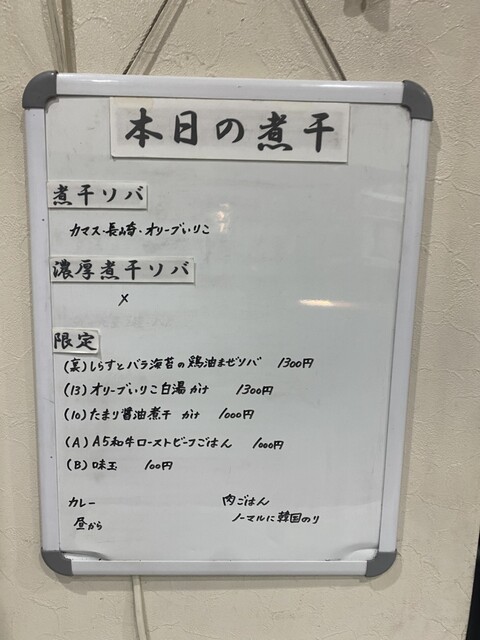 本日の煮干
煮干ソバ
カマス・長崎・オリーブいりこ
濃厚煮干ソバ
×
限定
(裏)しらすとバラ海苔の鶏油まぜソバ 1300円
(13)オリーブいりこ白湯かけ 1300円
(10)たまり醤油煮干 かけ 1000円
(A)A5和牛ローストビーフごはん 1000円
(B)味玉 100円
カレー 肉ごはん
昼から ノーマルに韓国のり